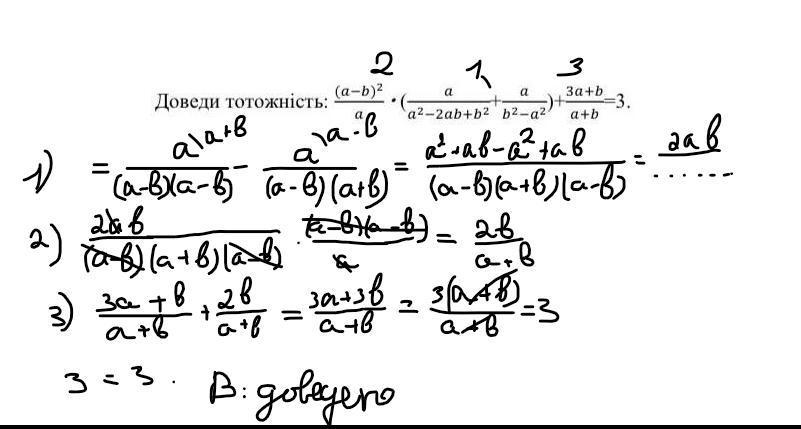 2 1 3
Доведи тотожність: (a−b)²/a • (a/(a²−2ab+b²) + a/(b²−a²)) + (3a+b)/(a+b) =3.
1) = a\a+b/((a-b)(a-b)) - a\a-b/((a-b)(a+b)) = (a²+ab-a²+ab)/((a-b)(a+b)(a-b)) = 2ab/.......
2) 2ab/((a-b)(a+b)(a-b)) · (a-b)(a-b)/a = 2b/(a+b)
3) (3a+b)/(a+b) + 2b/(a+b) = (3a+3b)/(a+b) = 3(a+b)/(a+b) = 3
3 = 3 . В: доведено